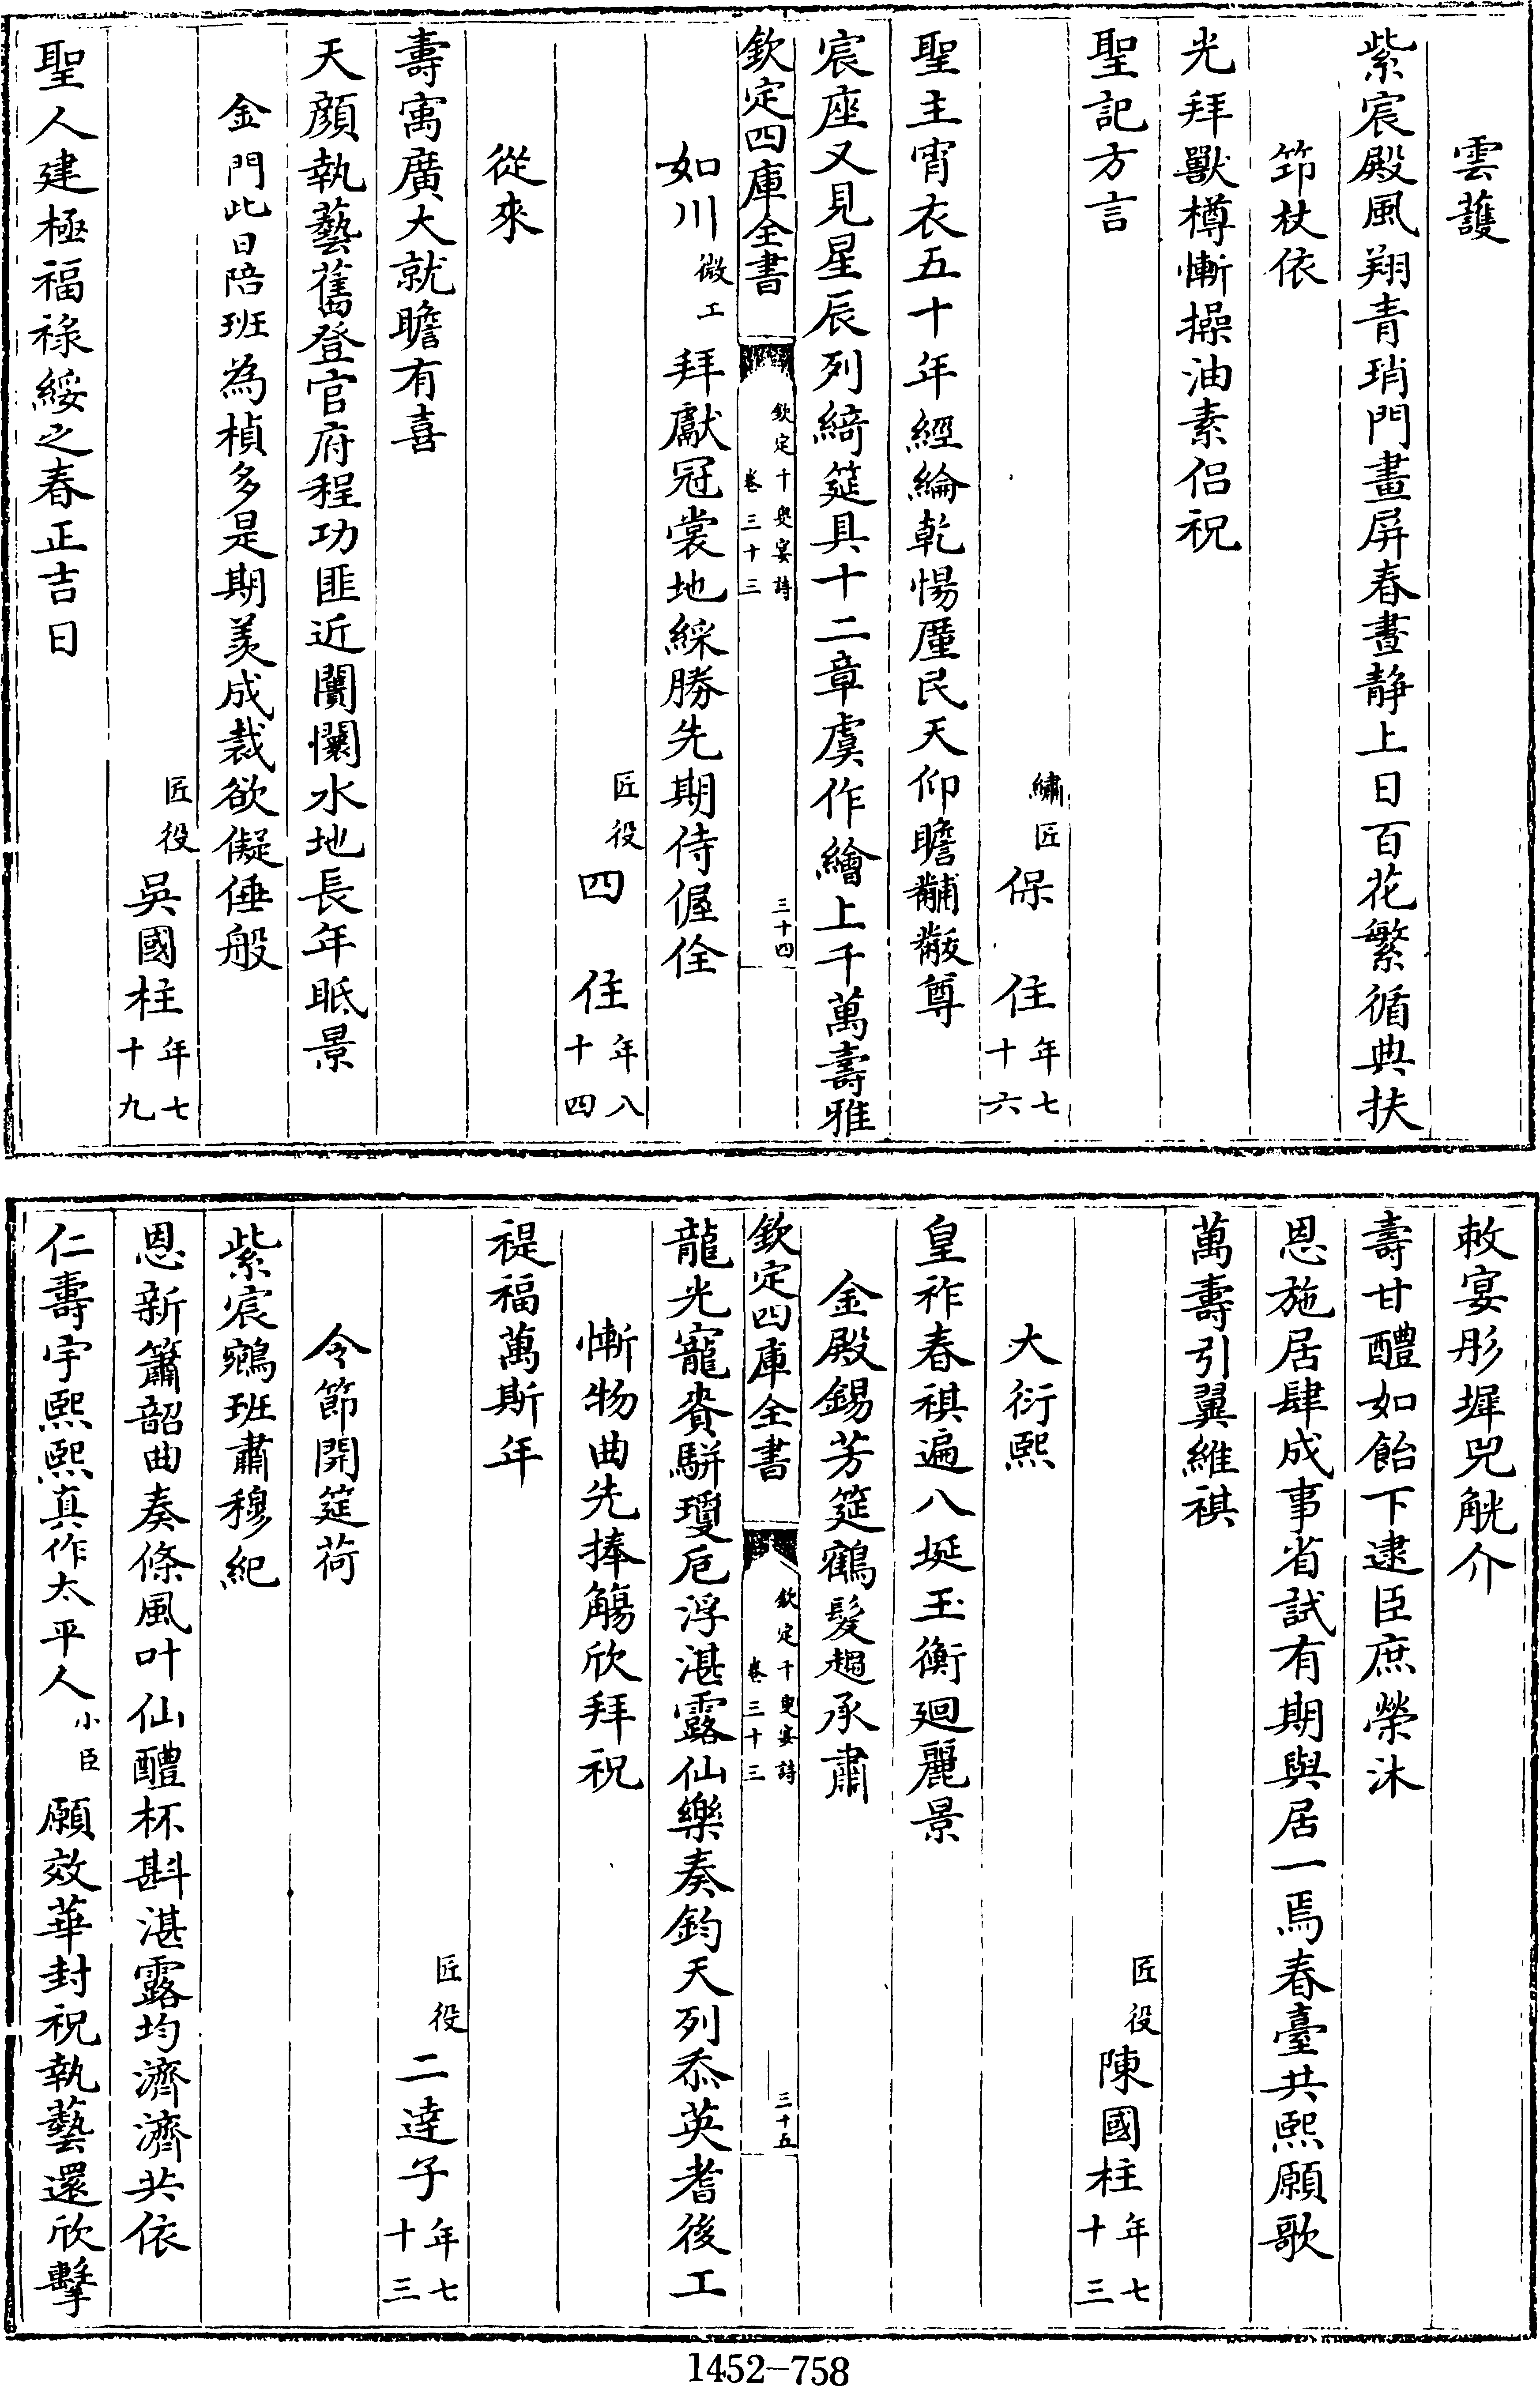 雲護
紫宸殿風翔青瑣門畫屏春晝静上日百花繁循典扶
筇杖依
光拜獸樽慚操油素侣祝
聖記方言
繡匠保住年七十六
聖主宵衣五十年經綸乾惕廑民天仰瞻黼黻尊
宸座又見星辰列綺筵具十二章虞作繪上千萬壽雅
欽定四庫全書
欽定千叟宴詩
卷三十三
三十四
如川微工拜獻冠裳地綵勝先期侍偓佺
匠役四住年八十四
從來
壽寓廣大就瞻有喜
天顔執藝舊登官府程功匪近闠闤水地長年眂景
金門此日陪班為楨多是期美成裁欲儗倕般
匠役吳國柱年七十九
聖人建極福祿綏之春正吉日
敕宴彤墀兕觥介
壽甘醴如飴下逮臣庶榮沐
恩施居肆成事省試有期與居一焉春臺共熙願歌
萬壽引翼維祺
匠役陳國柱年七十三
大衍熙
皇祚春祺遍八埏玉衡廻麗景
金殿錫芳筵鶴髮趨承肅
欽定四庫全書
欽定千叟宴詩
卷三十三
三十五
龍光寵賚駢瓊巵浮湛露仙樂奏鈞天列忝英耆後工
慚物曲先捧觴欣拜祝
禔福萬斯年
匠役二達子年七十三
令節開筵荷
紫宸鵷班肅穆紀
恩新簫韶曲奏條風叶仙醴杯斟湛露均濟濟共依
仁壽宇熙熙真作太平人小臣願效華封祝執藝還欣擊
1452-758